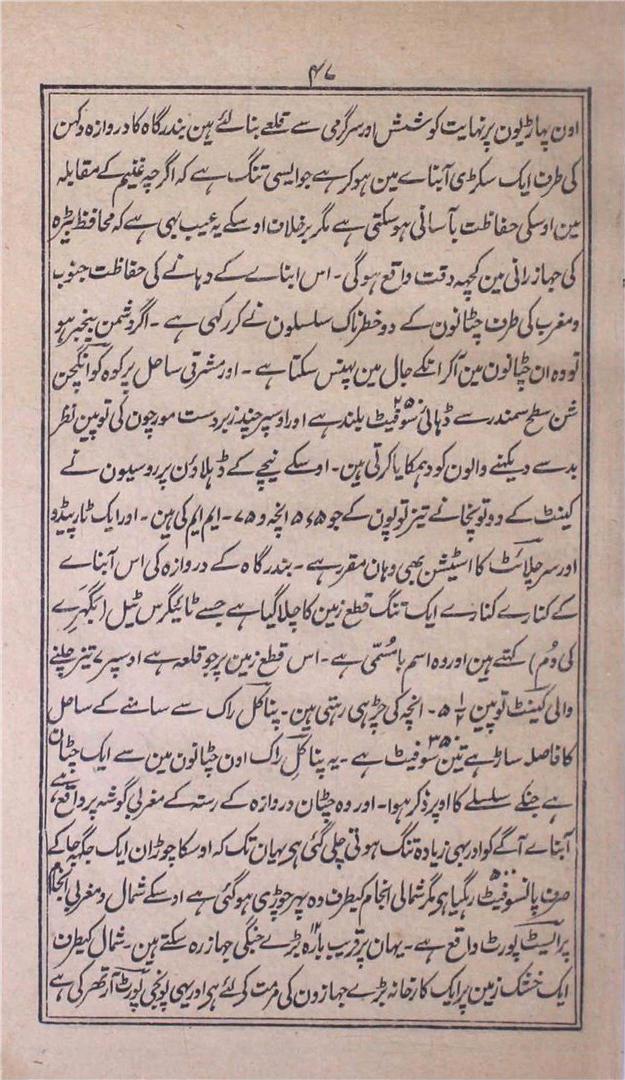 ۴۷
اون پہاڑیون پر نہایت کوشش اور سرگرمی سے قلعے بنالئے ہین بندرگاہ کا دروازہ دکہن
کی طرف ایک سکڑی آبناے مین ہوکر ہے جو ایسی تنگ ہے کہ اگرچہ غنیم کے مقابلہ
مین اوسکی حفاظت بآسانی ہوسکتی ہے مگر برخلاف اوسکے یہ عیب بہی ہے کہ محافظ بیڑہ
کی جہازرانی مین کچہہ دقت واقع ہوگی۔ اس ابناے کے دہانے کی حفاظت جنوب
ومغرب کی طرف چٹانون کے دو خطرناک سلسلون نے کررکہی ہے ۔ اگر دشمن بیخبر ہو
تو وہ ان چٹانون مین آکر انکے جال مین پہنس سکتا ہے ۔ اور مشرقی ساحل پر کوہ کوانگچن
شن سطح سمندر سے ڈہائی سو ۲۵۰ فیٹ بلند ہے اور اوسپر چند زبردست مورچون کی توپین نظر
بد سے دیکہنے والون کو دہمکایا کرتی ہین۔ اوسکے نیچے کے ڈہلاؤن پر روسیون نے
کینٹ کے دو توپخانے تیز توپون کے جو ۵ء۵ انچہ و ۷۵ ۔ ایم ایم کی ہین ۔ اور ایک ٹارپیڈو
اور سرچلائٹ کا اسٹیشن بھی وہان مقرر ہے ۔ بندرگاہ کے دروازہ کی اس آبناے
کے کنارے کنارے ایک تنگ قطع زمین کا چلا گیا ہے جسے ٹائیگرس ٹیل (بگہرے
کی دُم) کہتے ہین اور وہ اسم بامُسمّی ہے ۔ اس قطع زمین پر جو قلعہ ہے اوسپر ۷ تیز چلنے
والی کینٹ توپین ۵ ۱/۲ ۔ انچہ کی چڑہی رہتی ہین ۔ پناکل راک سے سامنے کے ساحل
کا فاصلہ ساڑہے تین سو ۳۵۰ فیٹ ہے ۔ یہ پناکل راک اون چٹانون مین سے ایک چٹان
ہے جنکے سلسلے کا اوپر ذکر ہوا۔ اور وہ چٹان دروازہ کے رستہ کے مغربی گوشہ پر واقع ہے
آبناے آگے کو اور بہی زیادہ تنگ ہوتی چلی گئی ہی یہان تک کہ اوسکا چوڑان ایک جگہہ جاکے
صرف پانسو ۵۰۰ فیٹ رہگیا ہی مگر شمالی انجام کیطرف وہ پہر چوڑی ہوگئی ہے اوسکے شمال ومغربی انجام
پر الیسٹ پورٹ واقع ہے ۔ یہان پر قریب بارہ ۱۲ بڑے جنگی جہاز رہ سکتے ہین ۔ شمال کیطرف
ایک خشک زمین پر ایک کارخانہ بڑے جہازون کی مرمت کولئے ہی اور یہی پونجی پورٹ آرتھر کی ہے